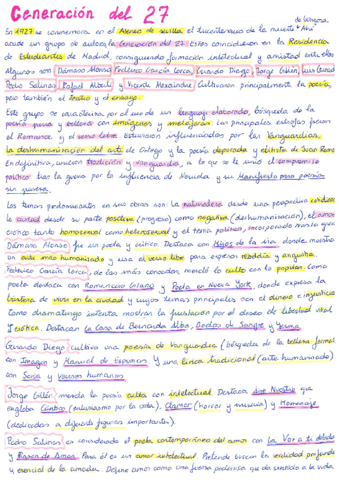 Generación del 27
de Góngora.
En 1927 se conmemora en el Ateneo de Sevilla el tricentenario de la muerte. Ahí
acude un grupo de autores, la Generación del 27. Estos coincidieron en la Residencia
de Estudiantes de Madrid, consiguiendo formación intelectual y amistad entre ellos
Algunos son: Dámaso Alonso, Federico García Lorca, Gerardo Diego, Jorge Guillén, Luis Cernuda
Pedro Salinas, Rafael Alberti y Vicente Aleixandre. Cultivaron principalmente la poesía,
pero también el teatro y el ensayo.
Este grupo se caracteriza por el uso de un lenguaje elaborado, búsqueda de la
poesía pura y belleza con imágenes y metáforas. Las principales estrofas fueron
el Romance y el verso libre. Estuvieron influenciados por las Vanguardias,
la deshumanización del arte de Ortega y la poesía depurada y abstracta de Juan Ramón
En definitiva, unieron tradición y vanguardia, a lo que se le unió el compromiso
político tras la guerra por la influencia de Neruda y su Manifiesto para poesía
sin pureza.
Los temas predominantes en sus obras son: la naturaleza desde una perspectiva cívica,
la ciudad desde su parte positiva (progreso) como negativa (deshumanización), el amor
erótico tanto homosexual como heterosexual y el tema político, incorporado más tarde
Dámaso Alonso fue un poeta y crítico. Destaca con Hijos de la ira, donde muestra
un arte más humanizado y usa el verso libre para expresar maldición y angustia.
Federico García Lorca, de los más conocidos, mezcló lo culto con lo popular. Como
poeta destaca con Romancero Gitano y Poeta en Nueva York, donde expresa la
tristeza de vivir en la ciudad y cuyos temas principales son el dinero e injusticia
Como dramaturgo intenta mostrar la frustración por el deseo de libertad vital
y erótica. Destacan La Casa de Bernarda Alba, Bodas de Sangre y Yerma.
Gerardo Diego cultiva una poesía de Vanguardia (búsqueda de la belleza formal)
con Imagen y Manual de Espumas. Y una línea tradicional (arte humanizado)
con Soria y Versos humanos
Jorge Guillén mezcla la poesía culta con intelectual. Destaca Aire Nuestro que
engloba Cántico (entusiasmo por la vida), Clamor (horror y miseria) y Homenaje
(dedicadas a diferentes figuras importantes).
Pedro Salinas es considerado el poeta contemporáneo del amor con La Voz a ti debida
y Razón de Amor. Para él es un amor intelectual. Pretende buscar la realidad profunda
y esencial de la amada. Define amor como una fuerza poderosa que da sentido a la vida.